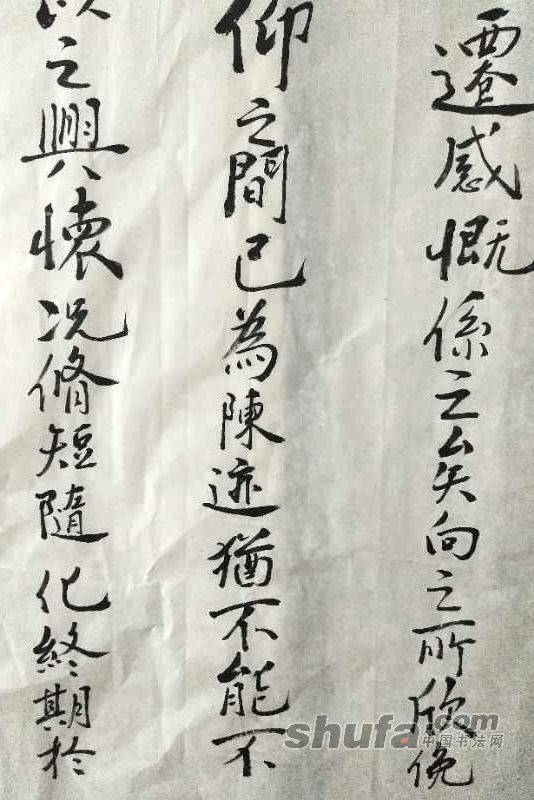 遷感慨係之矣向之所欣俛
仰之間已為陳迹猶不能不
以之興懷况脩短隨化終期於
shufa.com
中国书法网